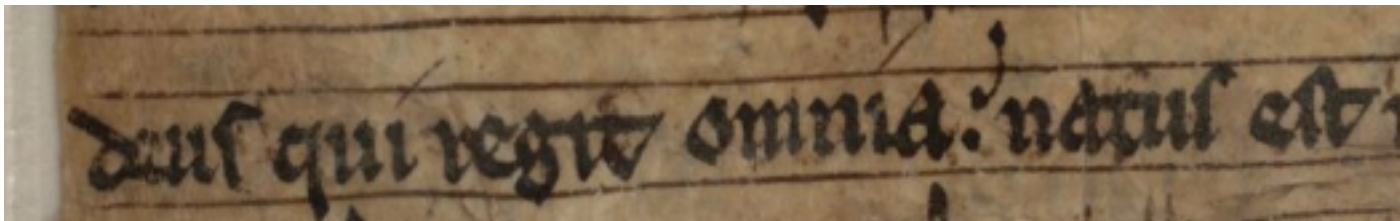 deus qui regit omnia: natus est